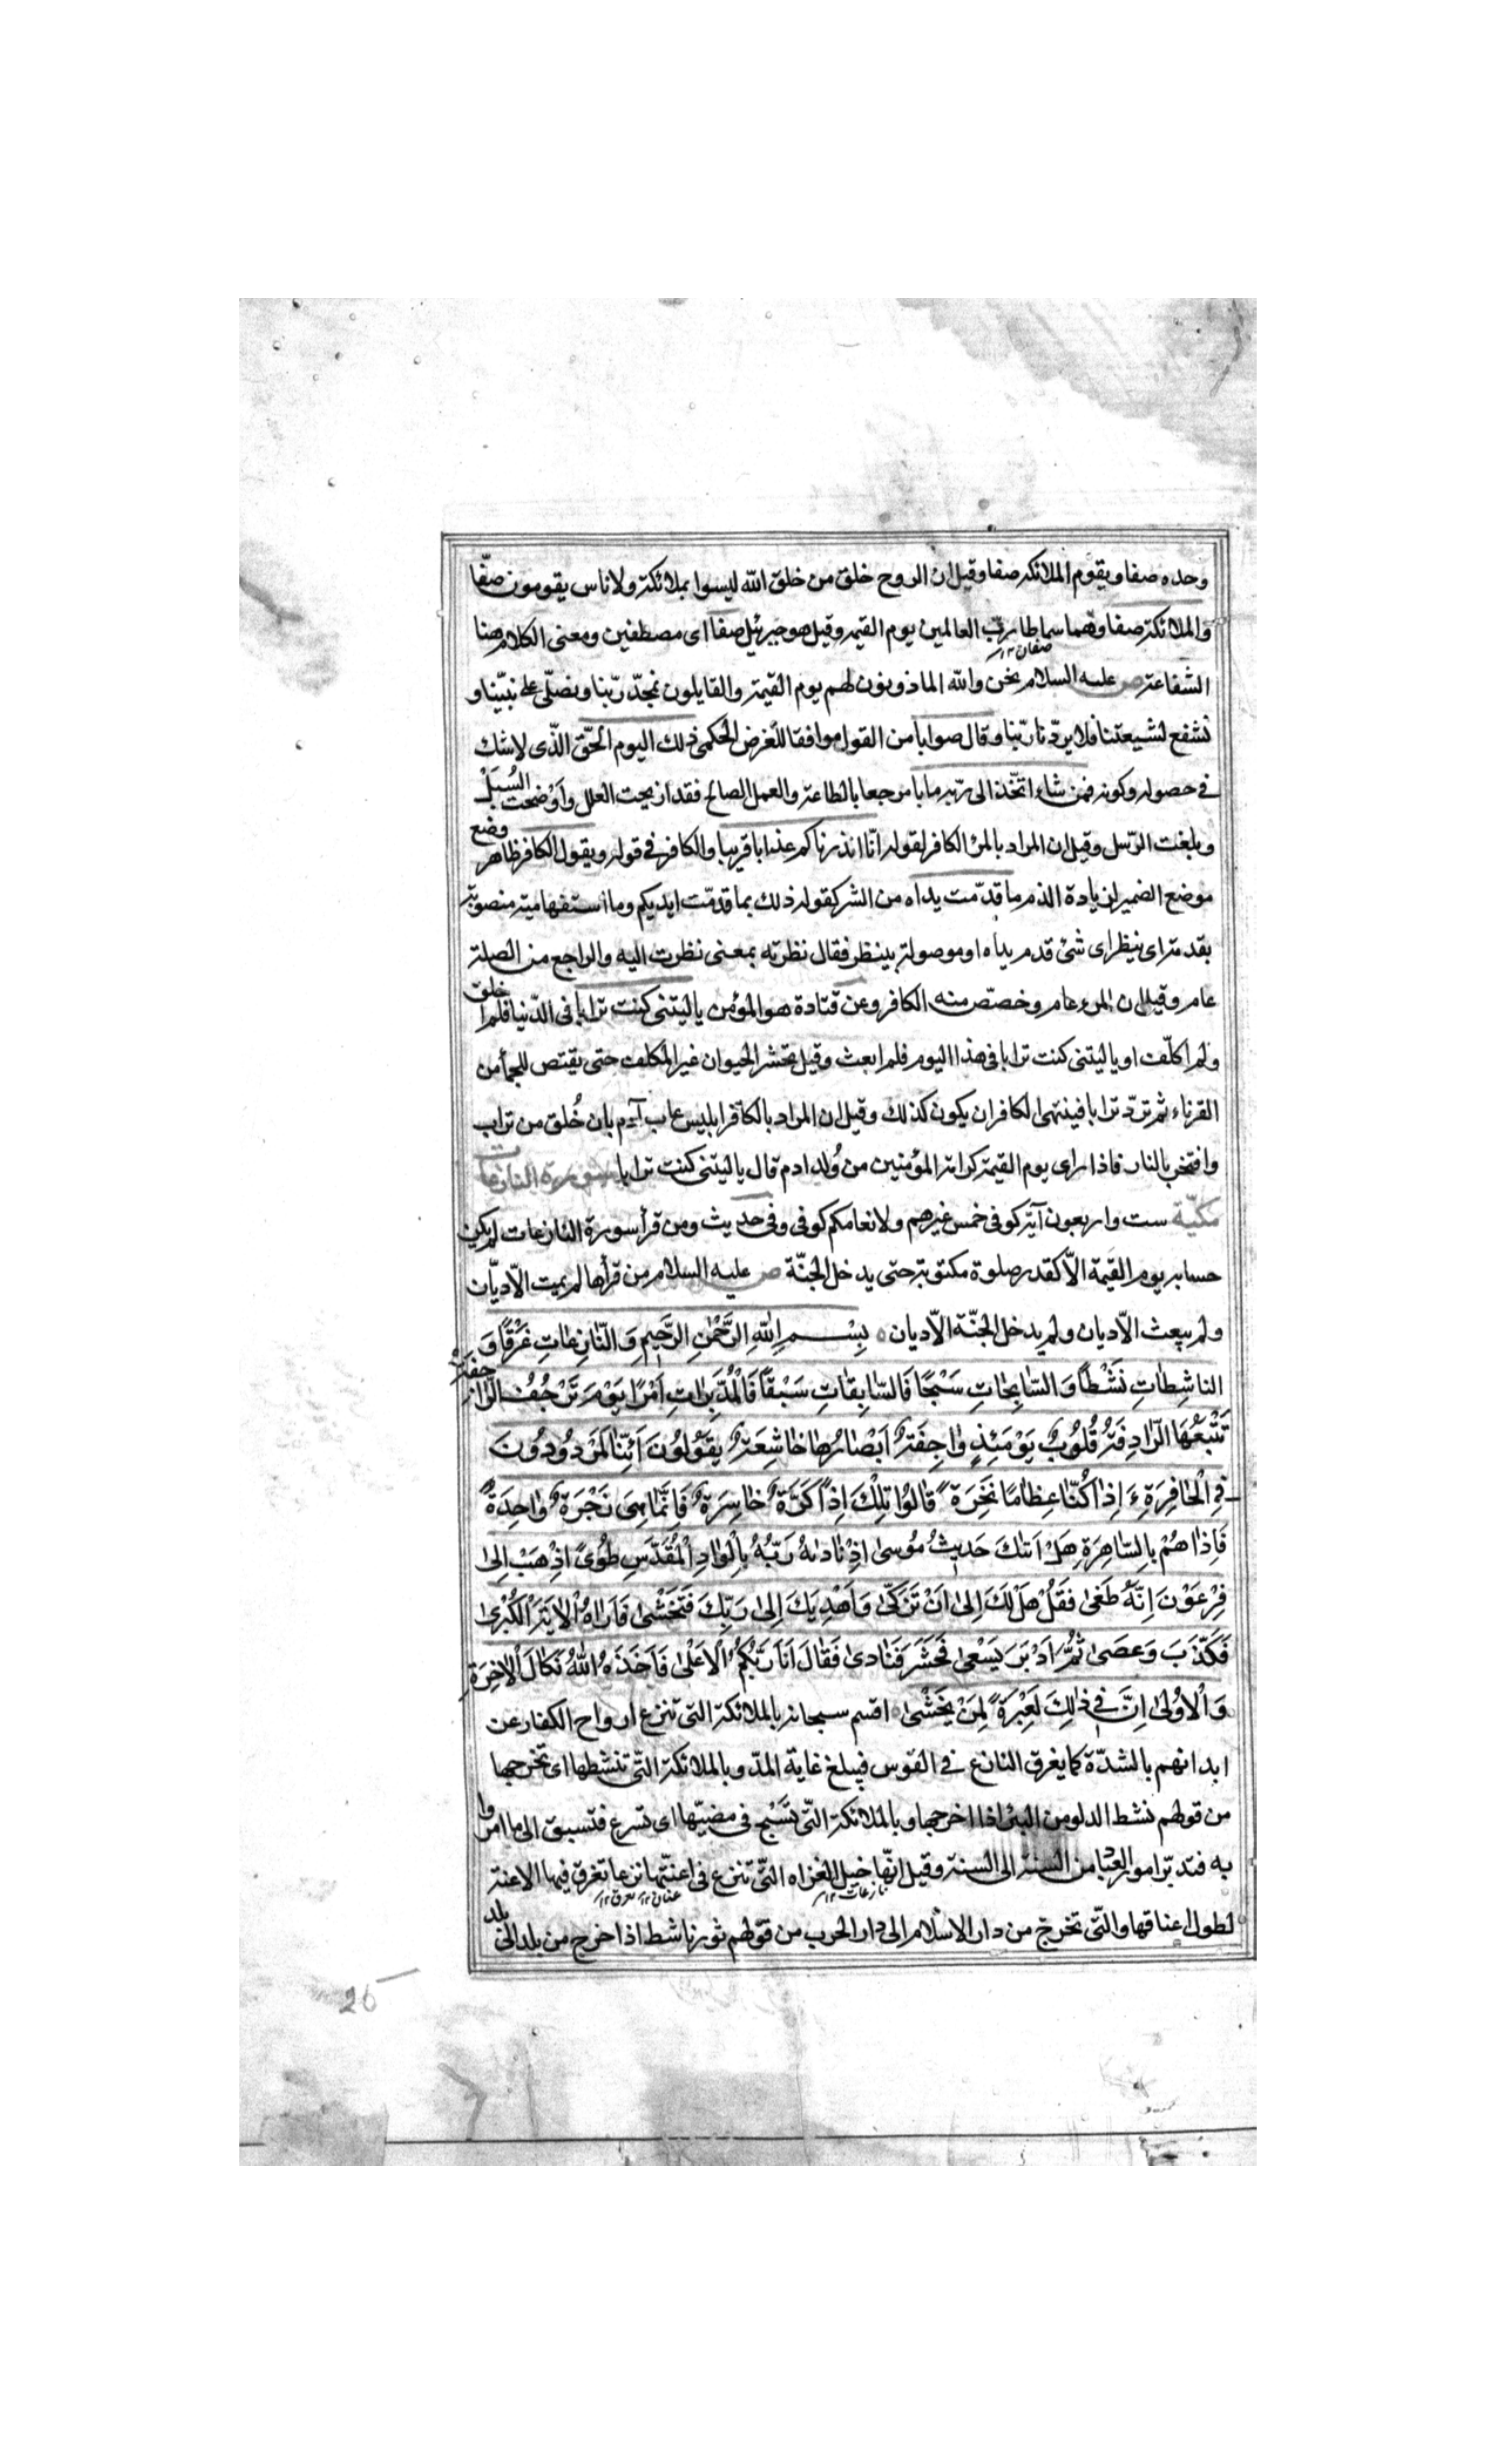 وحده صفا ويقوم الملائكة صفا وقيل ان الروح خلق من خلق الله ليسوا بملائكة ولا ناس يقومون صفّا
والملائكة صفا وهما سماطا ربّ العالمين يوم القيمة وقيل هو جبرئيل صفا اى مصطفين ومعنى الكلام هنا
صفان ١٢
الشفاعة ص عليه السلام نحن والله الماذونون لهم يوم القيمة والقايلون نمجّد ربّنا ونصلّى على نبيّنا و
نشفع لشيعتنا فلا يردّنا ربّنا وقال صوابا من القول موافقا للغرض الحكمى ذلك اليوم الحقّ الذّى لا شك
فى حصوله وكونه فمن شاء اتّخذ الى ربّه مابا مرجعا بالطاعة والعمل الصالح فقد ازيحت العلل واوضحت السُبل
وبلغت الرّسل وقيل ان المراد بالمرء الكافر لقوله انّا انذرناكم عذابا قريبا والكافر فى قوله ويقول الكافر ظاهر وضع
موضع الضمير لزيادة الذم ما قدّمت يداه من الشر كقوله ذلك بما قدمّت ايديكم وما استفهامية منصوبة
بقدمت اى ينظر اى شئ قدم يداه او موصولة بينظر فقال نظرته بمعنى نظرت اليه والراجع من الصلة
عام وقيل ان المرء عام وخصّص منه الكافر وعن قتادة هو المؤمن يا ليتنى كنت ترابا فى الدّنيا فلم اخلق
ولم اكلّف او يا ليتنى كنت ترابا فى هذا اليوم فلم ابعث وقيل يحشر الحيوان غير المكلف حتى يقتص للجمأ من
القرناء ثم تردّ ترابا فيتمنى الكافر ان يكون كذلك وقيل ان المراد بالكافر ابليس عاب آدم بان خُلق من تراب
وافتخر بالنار فاذا راى يوم القيمة كرامة المؤمنين من وُلد ادم قال يا ليتنى كنت ترابا سورة النازعات
مكيّة ست واربعون آية كوفى خمس غيرهم ولانعامكم كوفى وفى حديث ومن قرأ سورة النازعات لم يكن
حسابه يوم القيمة الاّ كقدر صلوة مكتوبة حتى يدخل الجنّة ص عليه السلام من قرأها لم يمت الاّ ديّان
ولم يبعث الاّ ديان ولم يدخل الجنّة الاّ ديان بِسْمِ اللهِ الرَّحْمٰنِ الرَّحِيمِ وَالنّازِعاتِ غَرْقًا وَ
الناشِطاتِ نَشْطًا وَالسّابِحاتِ سَبْحًا فَالسّابِقاتِ سَبْقًا فَالْمُدَبِّراتِ اَمْرًا يَوْمَ تَرْجُفُ الرّاجِفَةُ
تَتْبَعُهَا الرّادِفَةُ قُلُوبٌ يَوْمَئِذٍ واجِفَةٌ اَبْصارُها خاشِعَةٌ يَقُولُونَ اَئِنّا لَمَرْدُودُونَ
فِى الْحافِرَةِ ءَاِذا كُنّا عِظامًا نَخِرَةً قالُوا تِلْكَ اِذًا كَرَّةٌ خاسِرَةٌ فَاِنَّما هِىَ زَجْرَةٌ واحِدَةٌ
فَاِذا هُمْ بِالسّاهِرَةِ هَلْ اَتٰكَ حَديثُ مُوسىٰ اِذْ نادٰهُ رَبُّهُ بِالْوادِ الْمُقَدَّسِ طُوىً اِذْهَبْ اِلىٰ
فِرْعَوْنَ اِنَّهُ طَغىٰ فَقُلْ هَلْ لَكَ اِلىٰ اَنْ تَزَكّىٰ وَاَهْدِيَكَ اِلىٰ رَبِّكَ فَتَخْشىٰ فَاَراهُ الْايَةَ الْكُبْرىٰ
فَكَذَّبَ وَعَصىٰ ثُمَّ اَدْبَرَ يَسْعىٰ فَحَشَرَ فَنادىٰ فَقالَ اَنَا رَبُّكُمُ الْاَعْلىٰ فَاَخَذَهُ اللهُ نَكالَ الْاخِرَةِ
وَالْاُولىٰ اِنَّ فى ذٰلِكَ لَعِبْرَةً لِمَنْ يَخْشىٰ اقسم سبحانه بالملائكة التى تنزع ارواح الكفار عن
ابدانهم بالشدّة كما يغرق النازع فى القوس فيبلغ غاية المدّ وبالملائكة التّى تنشطها اى تخرجها
من قولهم نشط الدلو من البئر اذا اخرجها وبالملائكة التّى تسَّبح فى مضيّها اى تسرع فتسبق الى ما امروا
به فتدبّر امور العباد من السنة الى السنة وقيل انّها خيل الغزاه التّى تنزع فى اعنّتها نزعا تغرق فيها الاعنة
نازعات ١٢ عنان ١٢ غرق ١٢
لطول اعناقها والتّى تخرج من دار الاسلام الى دار الحرب من قولهم ثور ناشط اذا خرج من بلد الى بلد
26